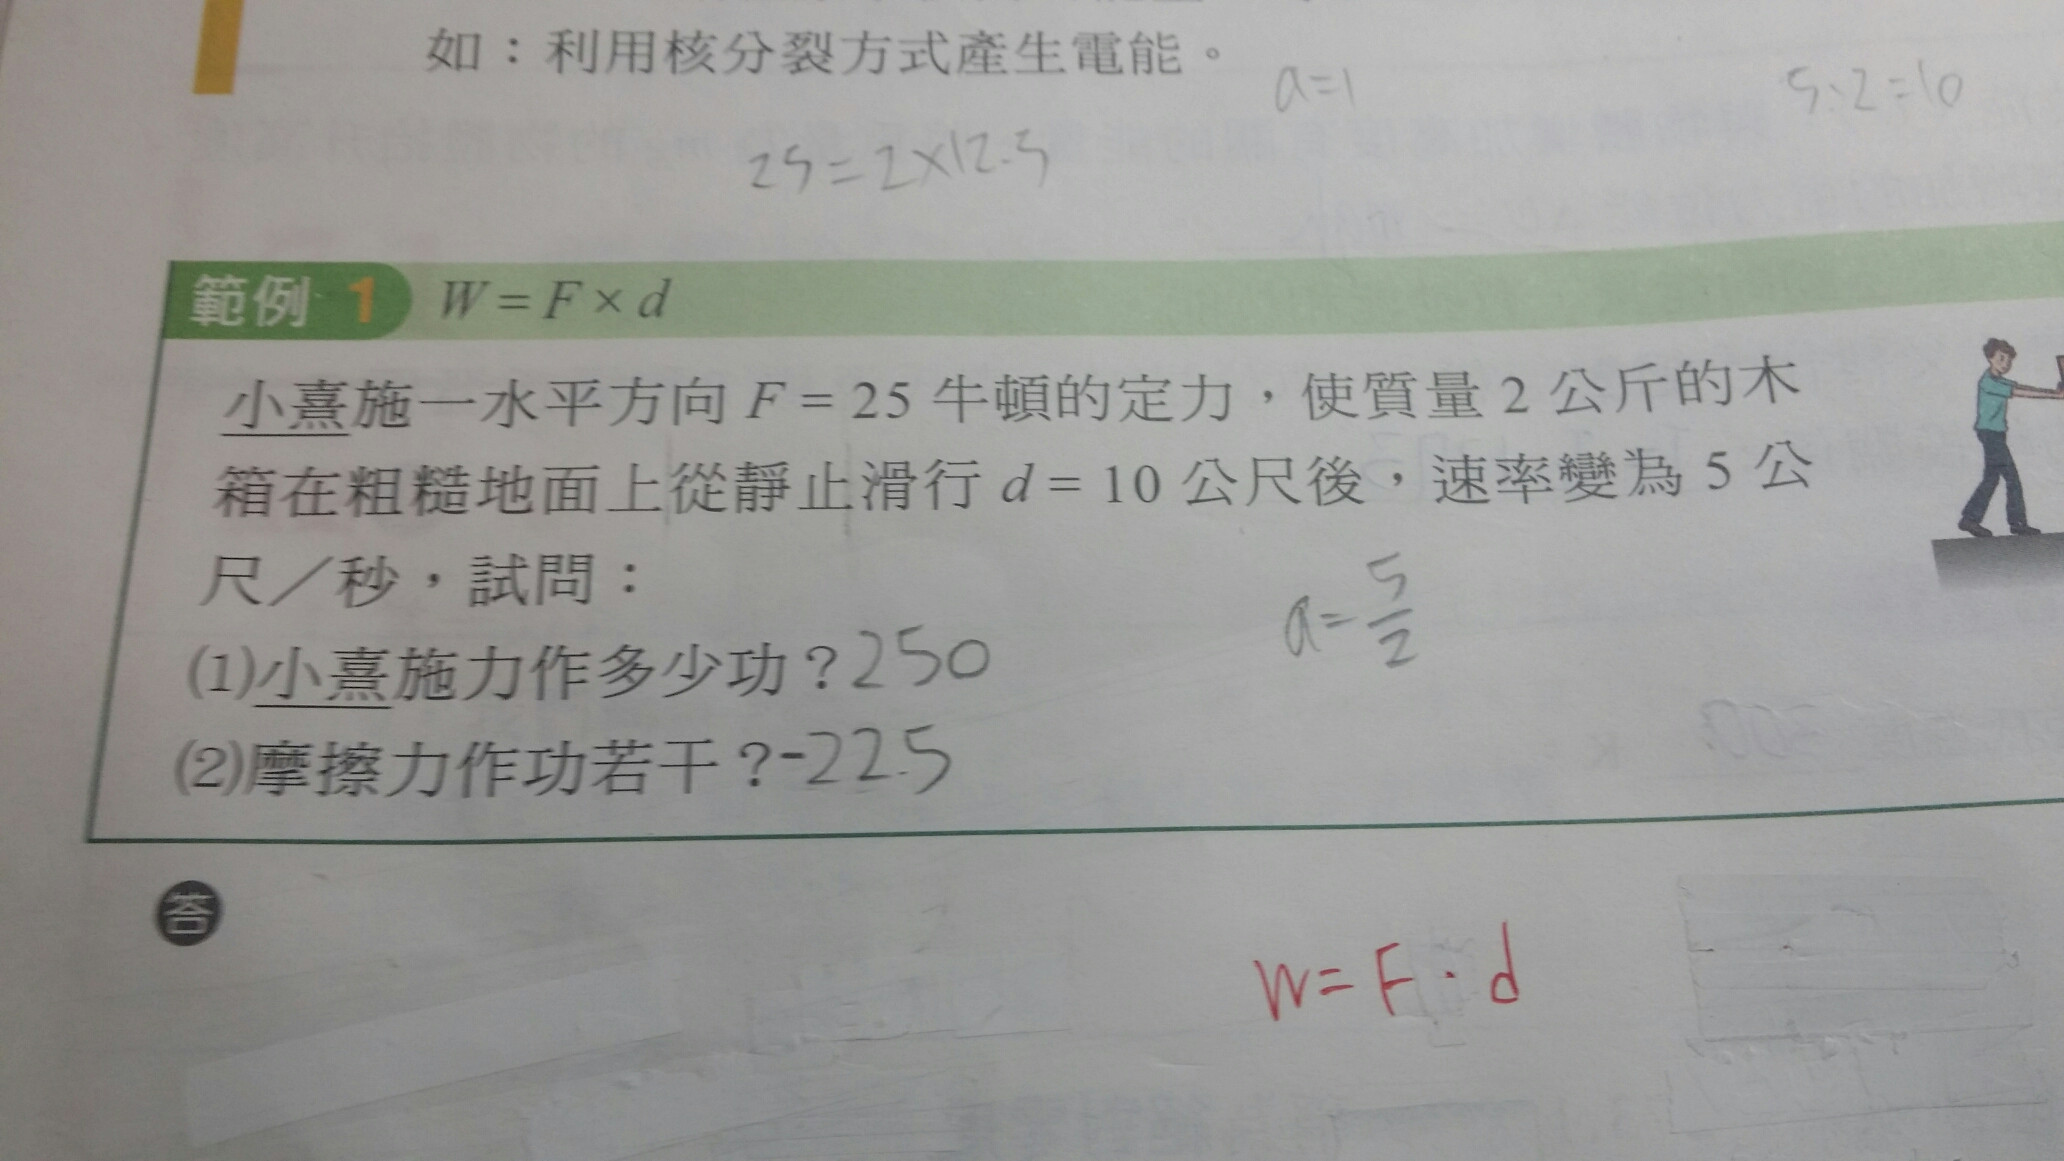 如：利用核分裂方式產生電能。
a=1
5:2=10
25=2×12.5
範例 1 W = F × d
小熹施一水平方向 F = 25 牛頓的定力，使質量 2 公斤的木
箱在粗糙地面上從靜止滑行 d = 10 公尺後，速率變為 5 公
尺／秒，試問：
a=5/2
(1)小熹施力作多少功？250
(2)摩擦力作功若干？-225
答
W=F·d